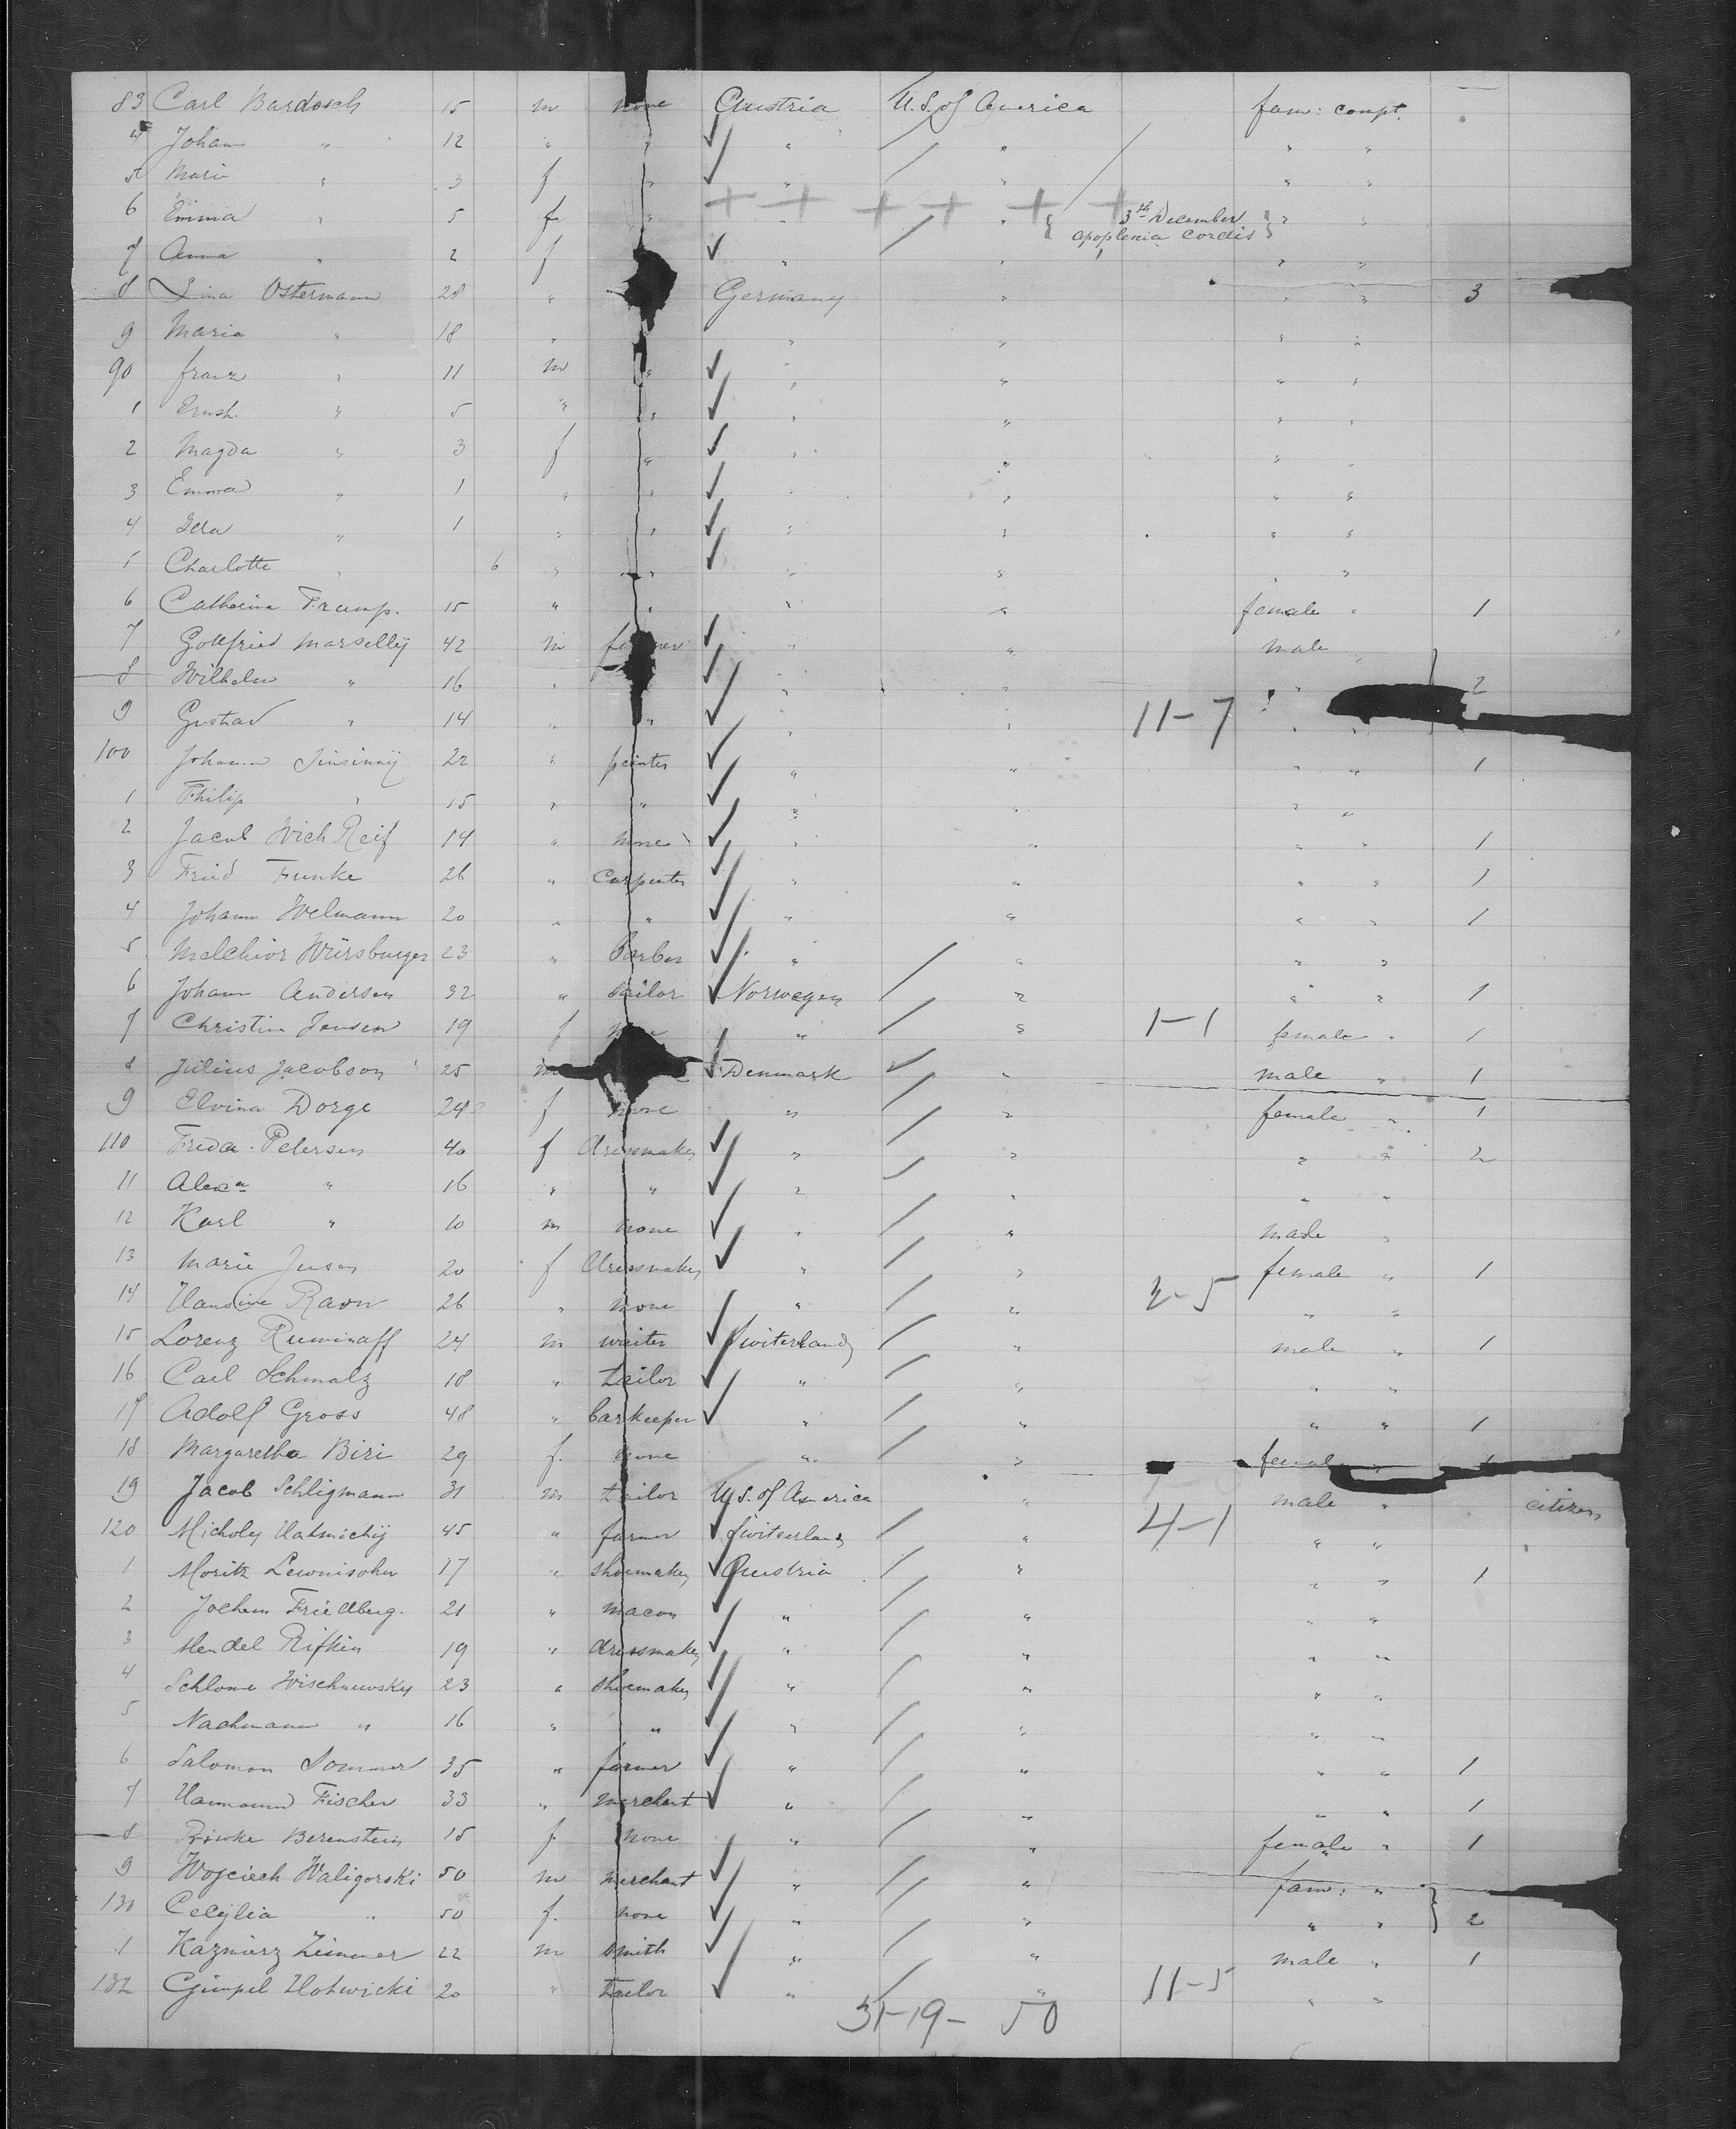 83 Carl Bardosch 15 m none Austria U.S. of America fam: compt.
4 Johan " 12 " " " " " "
5 Marie " 3 f " " " " "
6 Emma " 5 f. " " " { 3th December apoplexia cordis } " "
7 Anna " 2 f " " " "
8 Lina Ostermann 28 " Germany " " " 3
9 Maria " 18 " " " " "
90 franz " 11 m " " " " "
1 Ernst " 5 " " " " " "
2 Magda " 3 f " " " " "
3 Emma " 1 " " " " " "
4 Ida " 1 " " " " " "
5 Charlotte " 6 " " " " " "
6 Catharina Trump. 15 " " " " female " 1
7 Gottfried Marselly 42 m " " male "
8 Wilhelm " 16 " " " " 2
9 Gustav " 14 " " " " 11-7 " "
100 Johann 22 " painter " " " " 1
1 Philip " 15 " " " " " "
2 Jacob Reif 14 " none " " " " 1
3 Fried Funke 26 " Carpenter " " " " 1
4 Johann Welmann 20 " " " " " " 1
5 Melchior Würsburger 23 " Barber " " " "
6 Johann Andersen 32 " sailor Norwegen " " " 1
7 Christin Jensen 19 f " " 1-1 female " 1
8 Julius Jacobson 25 m Denmark " male " 1
9 Elvina Dorge 24 f none " " female " 1
110 Frida Petersen 40 f dressmaker " " " " 2
11 Alexa " 16 " " " " " "
12 Karl " 10 m none " " made "
13 Marie Jensen 20 f dressmaker " " female " 1
14 Hansine Raon 26 " none " " 2-5 " "
15 Lorenz Ruminaff 24 m waiter Switerland " male " 1
16 Carl Schmalz 18 " tailor " " " "
17 Adolf Gross 48 " barkeeper " " " " 1
18 Margaretha Biri 29 f. none " " female " 1
19 Jacob Schligmann 31 m tailor U.S. of America " male " citizen
120 45 " farmer Switserland " 4-1 " "
1 Moritz Lewnisohn 17 " shoemaker Austria " " " 1
2 Jochem Friedberg. 21 " macon " " " "
3 Mendel Rifkin 19 " dressmaker " " " "
4 Schlome Wischnewsky 23 " shoemaker " " " "
5 Nachmann " 16 " " " " " "
6 Salomon Sommer 35 " farmer " " " " 1
7 Fischer 33 " merchant " " " " 1
8 Riwke Berenstein 15 f. none " " female " 1
9 Wojciech Waligorski 50 m merchant " " fam: "
130 Cecylia " 50 f. none " " " " } 2
1 Kazmierz Zimmer 22 m smith " " male " 1
132 Gimpel Hotwicki 20 " tailor " " 11-5 " "
31-19- 50